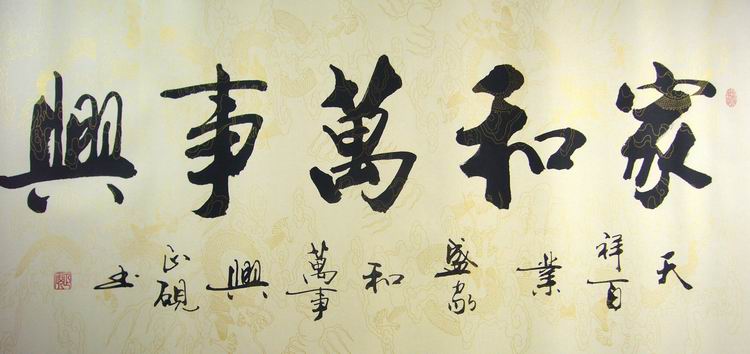 家和萬事興
天祥百業盛家和萬事興 正硯书